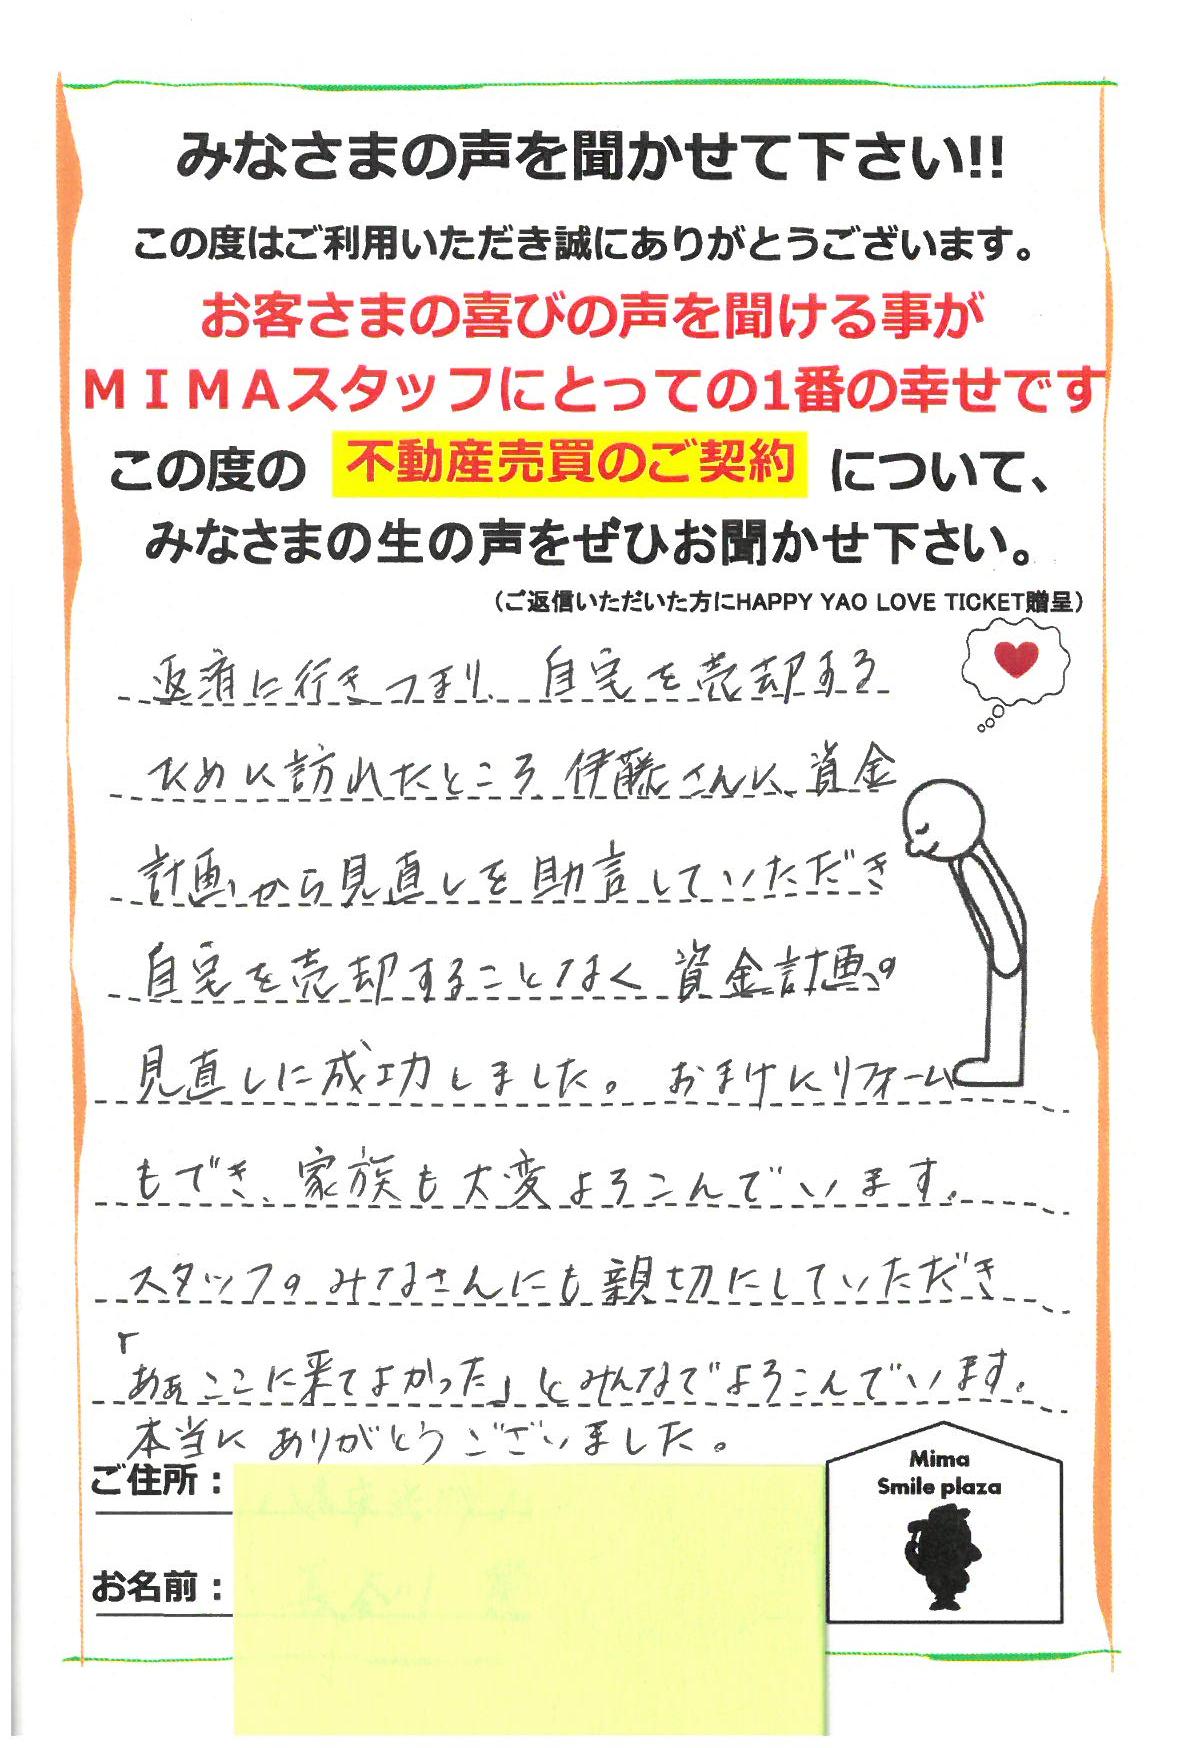 みなさまの声を聞かせて下さい!!
この度はご利用いただき誠にありがとうございます。
お客さまの喜びの声を聞ける事が
ＭＩＭＡスタッフにとっての1番の幸せです
この度の 不動産売買のご契約 について、
みなさまの生の声をぜひお聞かせ下さい。
（ご返信いただいた方にHAPPY YAO LOVE TICKET贈呈）
返済に行きつまり、自宅を売却する
ために訪れたところ伊藤さんに、資金
計画から見直しを助言していただき
自宅を売却することなく資金計画の
見直しに成功しました。おまけにリフォーム
もでき、家族も大変よろこんでいます。
スタッフのみなさんにも親切にしていただき
「あぁここに来てよかった」とみんなでよろこんでいます。
本当にありがとうございました。
ご住所：
お名前：
Mima
Smile plaza